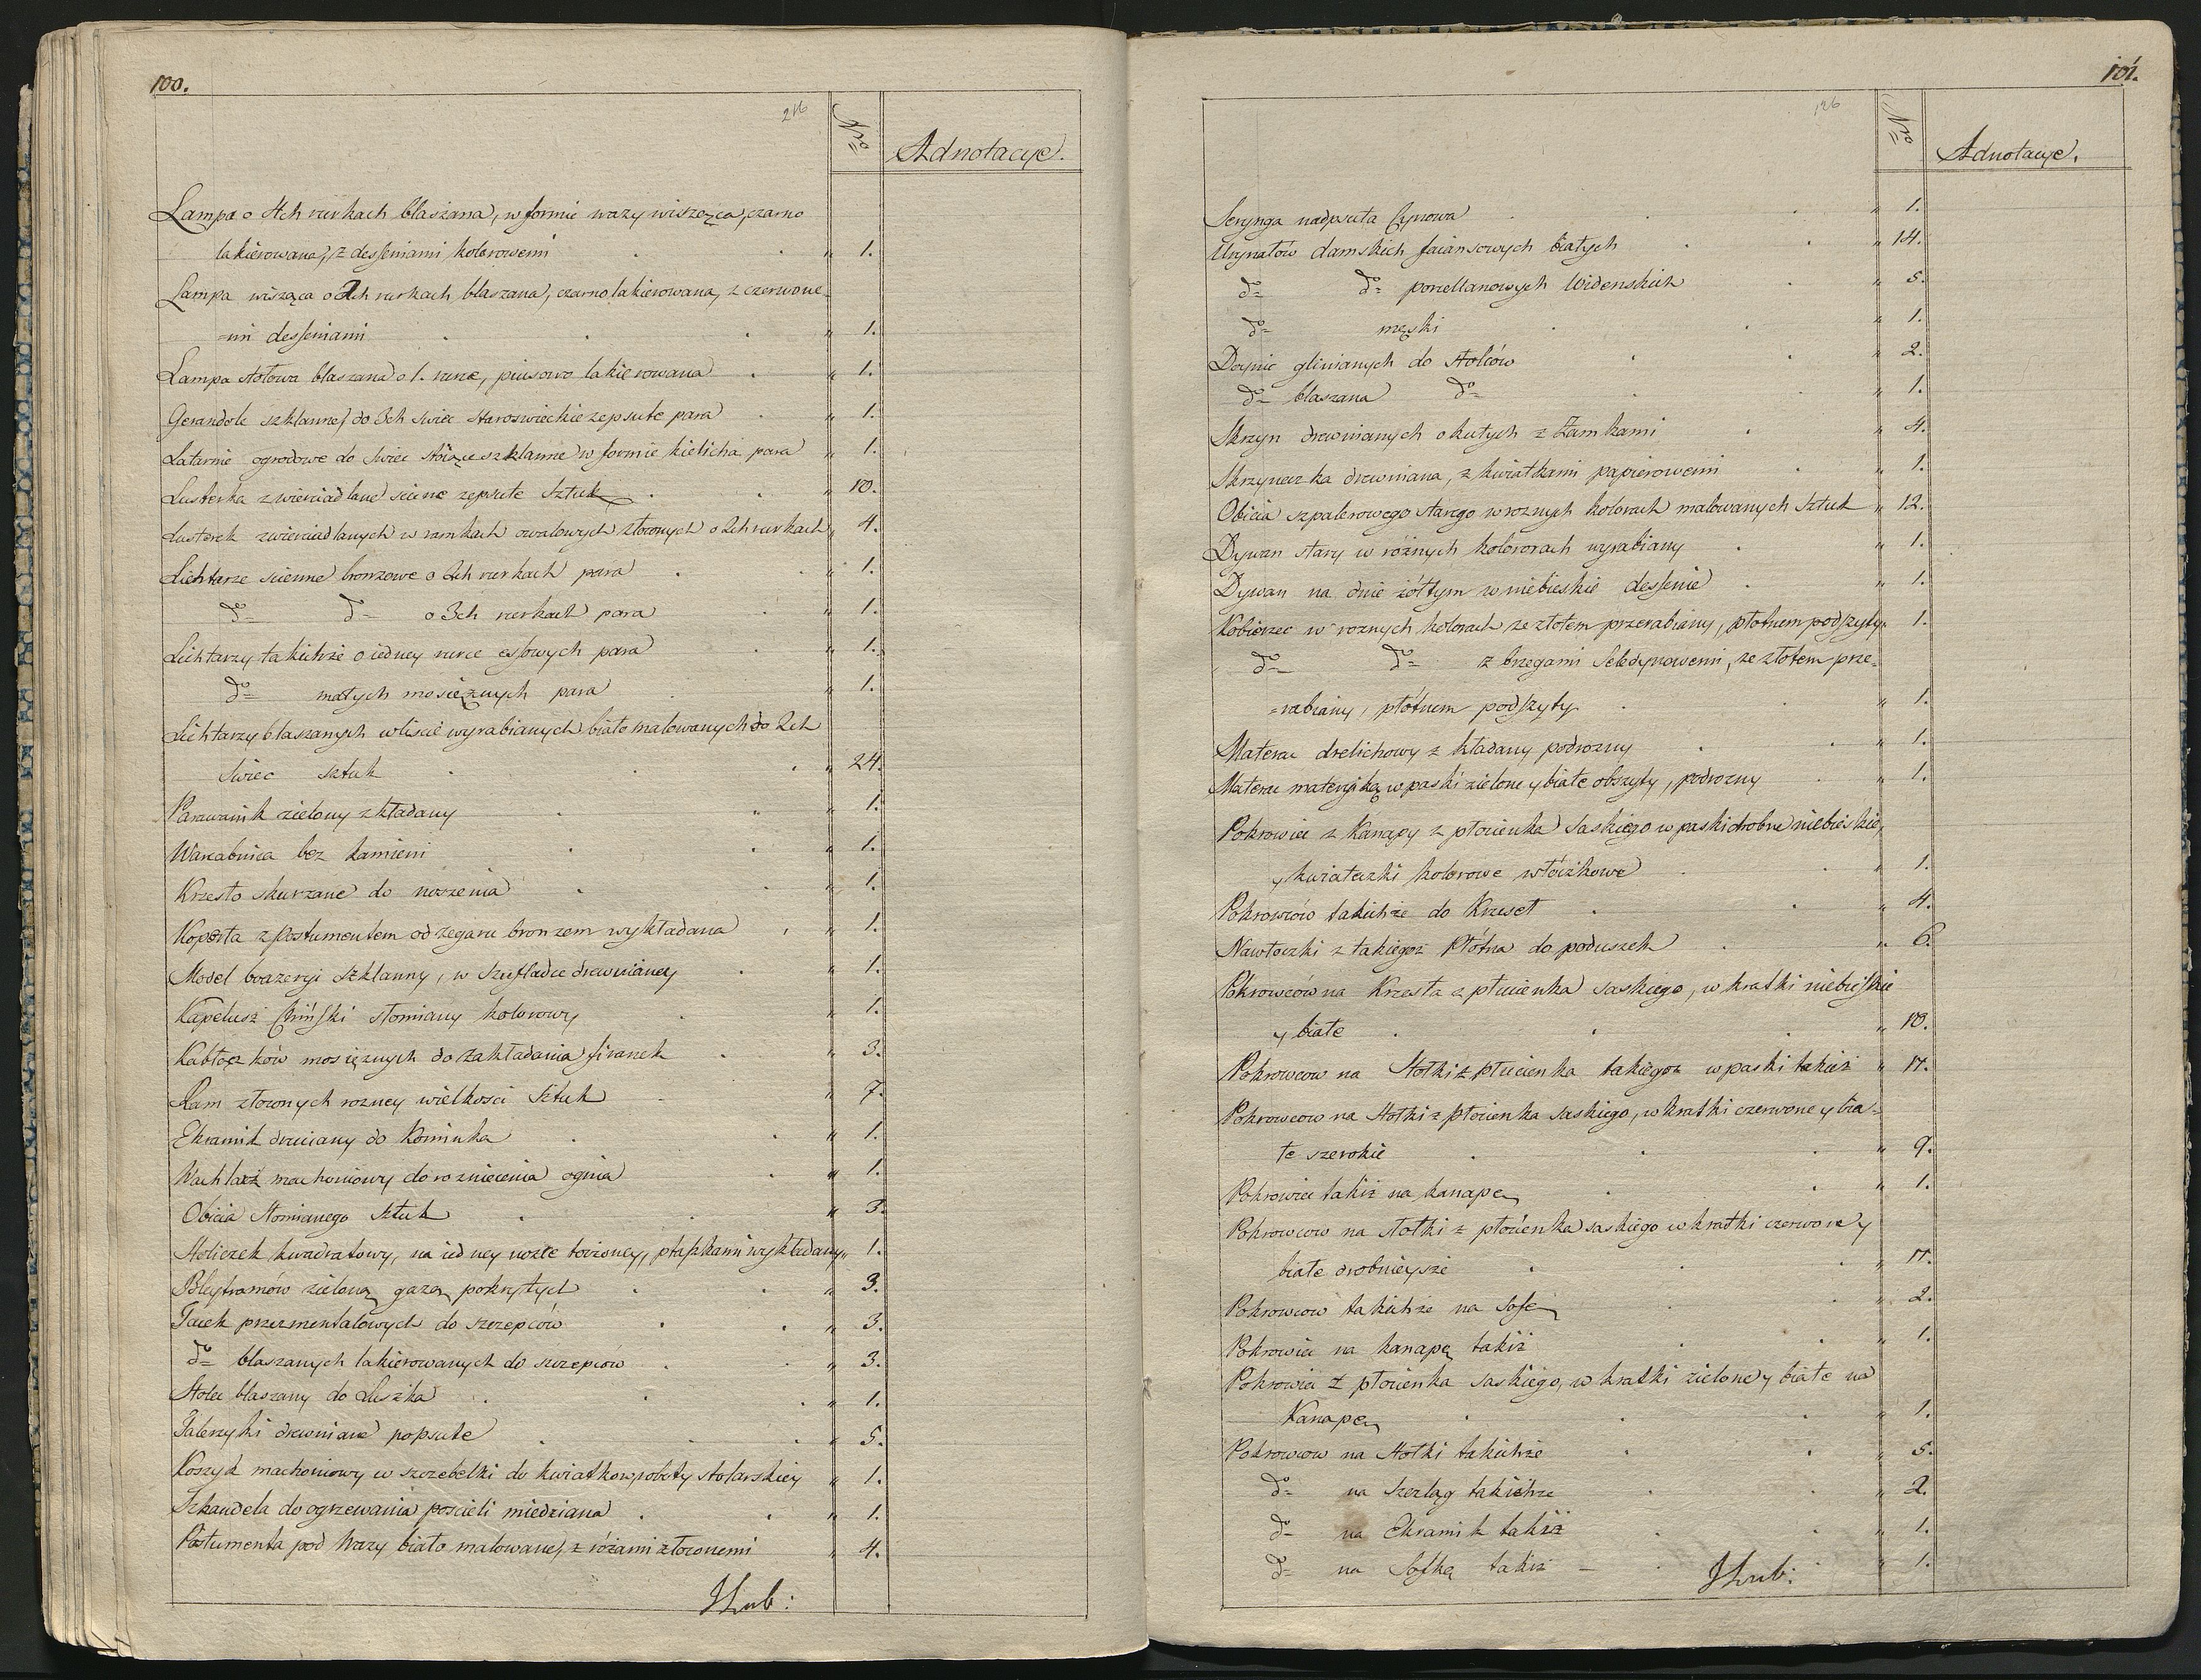 100.
Nro
Adnotacye.
Lampa o 4ch rurkach blaszana, w formie wazy wisząca, czarno
lakierowana, z desseniami kolorowemi " 1.
Lampa wisząca o 2ch rurkach, blaszana, czarno lakierowana, z czerwone-
=mi desseniami " 1.
Lampa stołowa blaszana o 1. rurce, piusowo lakierowana " 1.
Gerandole szklanne do 3ch swiec staroswieckie zepsute para " 1.
Latarnie ogrodowe do swiec stoiące szklanne w formie kielicha para " 1.
Lusterka zwierciadlane scienne zepsute Sztuk " 10.
Lusterek zwierciadlanych w ramkach owalowych złoconych o 2ch rurkach " 4.
Lichtarze scienne bronzowe o 2ch rurkach para " 1.
do do o 3ch rurkach para " 1.
Lichtarzy takichże o iedney rurce essowych para " 1.
do małych mosiężnych para " 1.
Lichtarzy blaszanych w liscie wyrabianych biało malowanych do 2ch
Swiec sztuk " 24.
Parawanik zielony składany " 1.
Warcabnica bez kamieni " 1.
Krzesło skurzane do noszenia " 1.
Koperta z postumentem od zegaru bronzem wykładana " 1.
Model brazeryi szklanny, w szufladce drewnianey " 1.
Kapelusz Chiński słomiany kolorowy " 1.
Kabłączków mosiężnych do zakładania firanek " 3.
Ram złoconych rozney wielkosci Sztuk " 7.
Ekranik druciany do Kominka " 1.
Wachlarz machoniowy do rozniecenia ognia " 1.
Obicia słomianego Sztuk " 3.
Stoliczek kwadratowy, na iedney nozce toczoney, ptaszkami wykładany " 1.
Bleytramów zieloną gazą pokrytych " 3.
Tacek przezmentalowych do szczepców " 3.
do blaszanych lakierowanych do szczepców " 3.
Stolec blaszany do Łuszka " 1.
Talerzyki drewniane popsute " 5.
Koszyk machoniowy w szczebelki do kwiatkow roboty stolarskiey " 1.
Szkandela do ogrzewania poscieli miedziana " 1.
Postumenta pod Wazy biało malowane, z różami złoconemi " 4.
101.
126
Nro
Adnotacye.
Serynga nadpsuta Cynowa " 1.
Urynałów damskich faiansowych białych " 14.
do do porcellanowych Widenskich " 5.
do męski " 1.
Doynic glinianych do stolców " 2.
do blaszana do " 1.
Skrzyn drewnianych okutych z Zamkami " 4.
Skrzyneczka drewniana, z kwiatkami papierowemi " 1.
Obicia szpalerowego starego w roznych kolorach malowanych Sztuk " 12.
Dywan stary w różnych kolororach wyrabiany " 1.
Dywan na dnie żółtym w niebieskie dessenie " 1.
Kobierzec w roznych kolorach ze złotem przerabiany, płotnem podszyty " 1.
do do z brzegami Seledynowemi, ze złotem prze-
=rabiany, płótnem podszyty " 1.
Materac drelichowy składany podrozny " 1.
Materac materyiką w paski zielone y białe obszyty, podrozny " 1.
Pokrowiec z Kanapy z płocienka Saskiego w paski drobne niebieskie,
y kwiateczki kolorowe włóczkowe " 1.
Pokrowców takichże do Krzeseł " 4.
Nawłoczki z takiegoz Płótna do poduszek " 6.
Pokrowców na Krzesła z płucienka saskiego, w kratki niebieskie
y białe " 10.
Pokrowcow na Stołki z płucienka takiegoz w paski takież " 17.
Pokrowcow na stołki z płocienka saskiego, w kratki czerwone y bia-
łe szerokie " 9.
Pokrowiec takiż na kanapę " 1.
Pokrowcow na stołki z płocienka saskiego w kratki czerwone y
białe drobnieysze " 17.
Pokrowcow takichże na Sofę " 2.
Pokrowiec na kanapę takiż " 1.
Pokrowiec z płocienka saskiego, w kratki zielone y białe na
Kanapę " 1.
Pokrowcow na Stołki takichże " 5.
do na Szezląg takichze " 2.
do na Ekranik takiż " 1.
do na Sofkę takiż " 1.